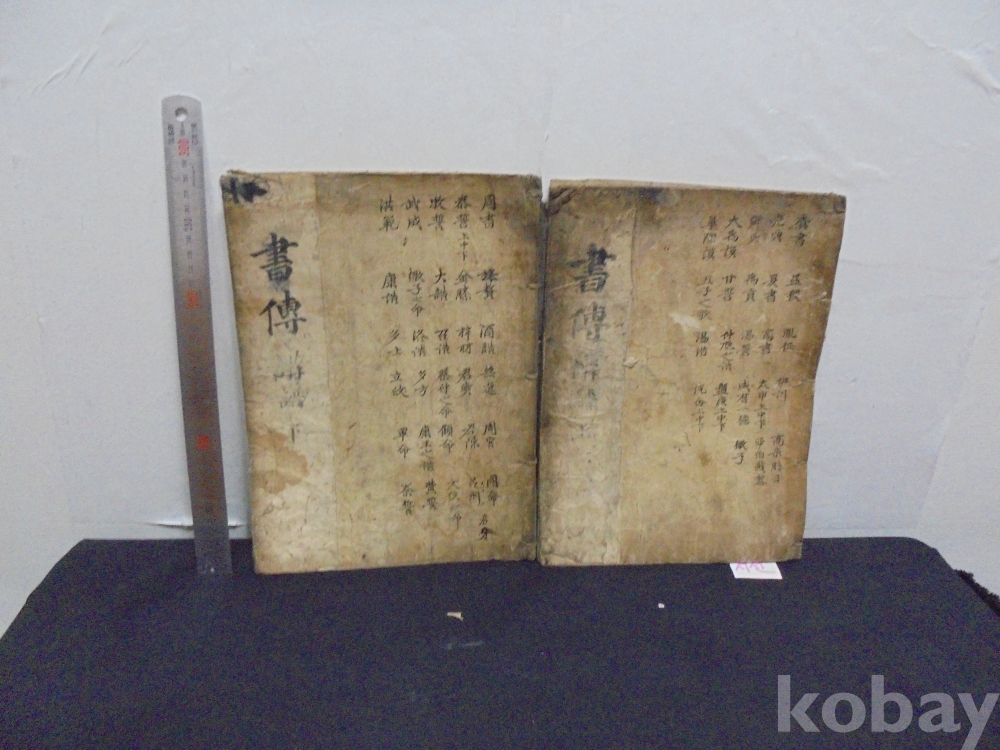 書傳
下
周書 旅獒 酒誥 無逸 周官 冏命 君牙
泰誓上中下 金縢 梓材 君奭 君陳 呂刑
牧誓 大誥 召誥 蔡仲之命 顧命 文侯之命
武成 微子之命 洛誥 多方 康王之誥 費誓
洪範 康誥 多士 立政 畢命 秦誓
書傳
虞書 益稷 胤征 伊訓
夏書 商書 太甲上中下
大禹謨 甘誓 仲虺之誥 盤庚上中下 微子
五子之歌 湯誥 說命上中下
禹貢 湯誓 咸有一德
kobay